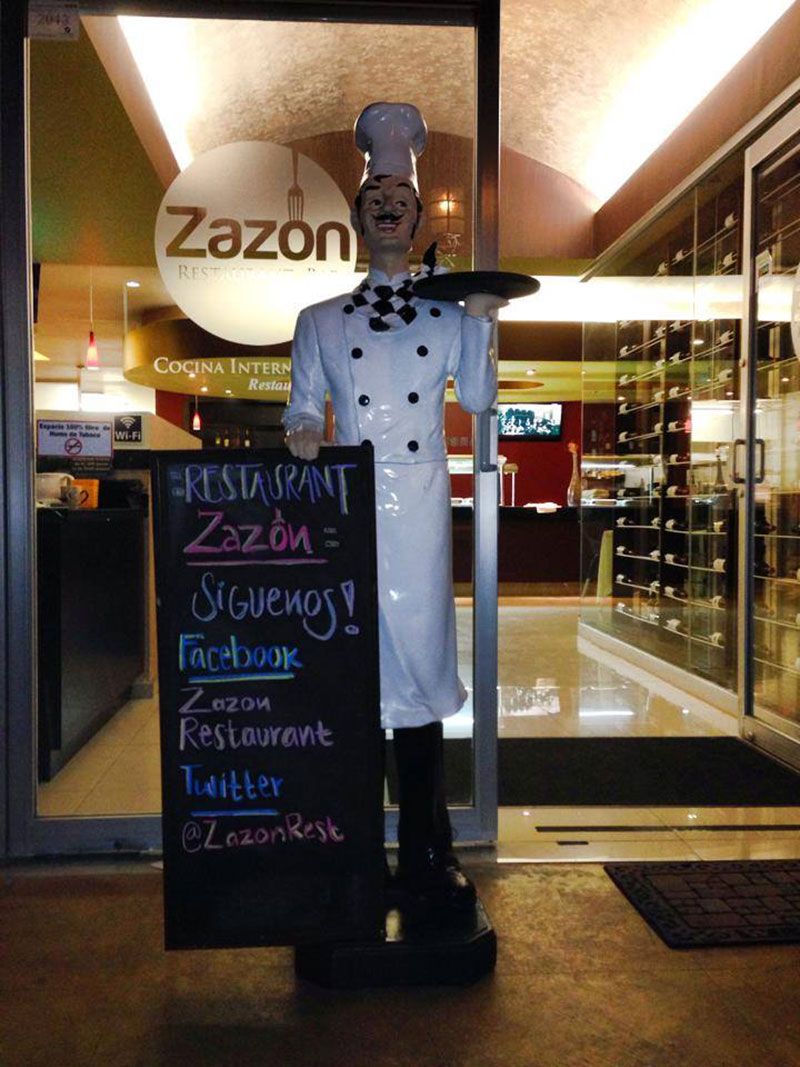 2043
Zazón
RESTAURANT BAR
COCINA INTERN
Restau
Espacio 100% libre de
Humo de Tabaco
Wi-Fi
RESTAURANT
Zazón
Siguenos!
Facebook
Zazon
Restaurant
Twitter
@ZazonRest